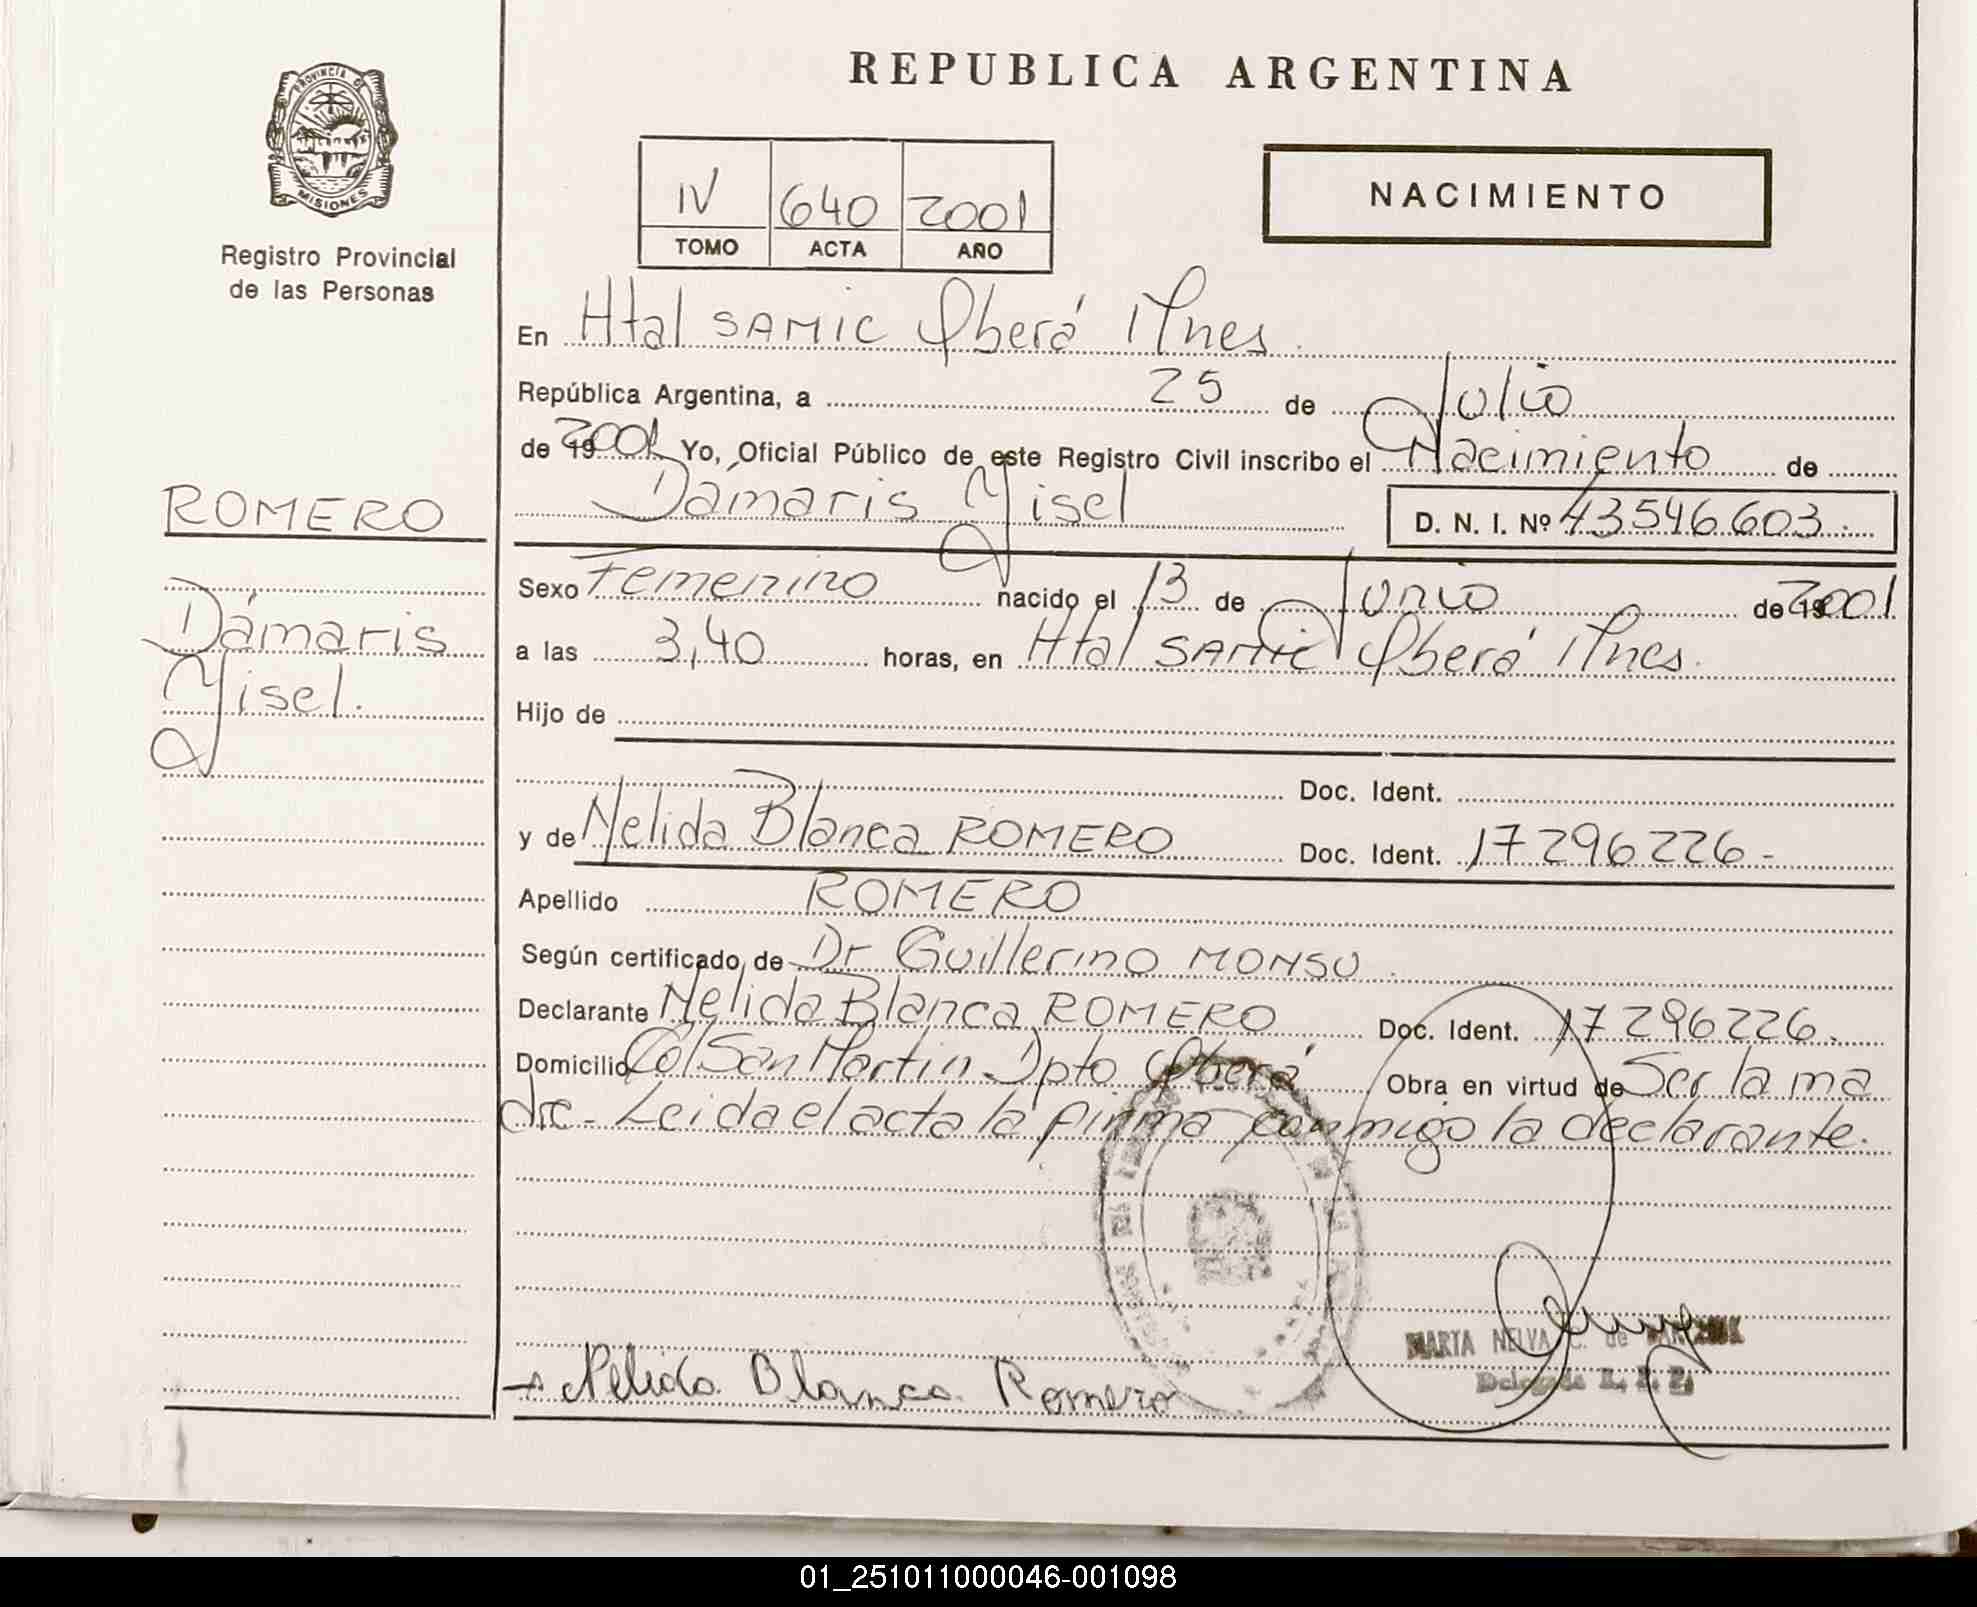 REPUBLICA ARGENTINA
PROVINCIA DE
MISIONES
Registro Provincial
de las Personas
IV 640 2001
TOMO ACTA AÑO
NACIMIENTO
En Htal SAMIC Oberá Mnes.
República Argentina, a 25 de Julio
de 19 2001 Yo, Oficial Público de este Registro Civil inscribo el Nacimiento de
Dámaris Yisel D. N. I. Nº 43.546.603.
ROMERO
Dámaris
Yisel.
Sexo Femenino nacido el 13 de Junio de 19 2001
a las 3,40 horas, en Htal SAMIC Oberá Mnes.
Hijo de
Doc. Ident.
y de Nelida Blanca ROMERO Doc. Ident. 17296226-
Apellido ROMERO
Según certificado de Dr Guillermo MONSU
Declarante Nelida Blanca ROMERO Doc. Ident. 17296226.
Domicilio Col San Martin Dpto Oberá Obra en virtud de Ser la ma
dre- Leida el acta la firma conmigo la declarante.
MARTA NELVA C. de
Delegada R. P. P.
Nelida Blanca Romero
01_251011000046-001098